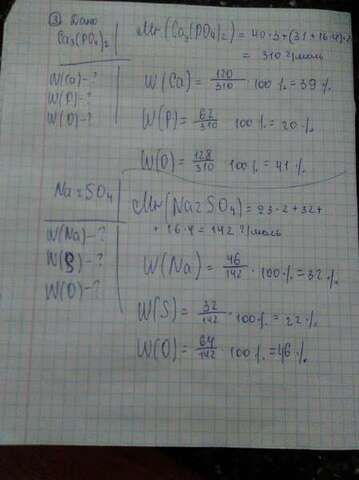 ③ Дано
Ca₃(PO₄)₂
W(Ca)-?
W(P)-?
W(O)-?
Mr(Ca₃(PO₄)₂) = 40·3+(31+16·4)·2
= 310 г/моль
W(Ca) = 120/310 · 100% = 39%
W(P) = 62/310 100% = 20%
W(O) = 128/310 100% = 41%
Na₂SO₄
W(Na)-?
W(S)-?
W(O)-?
Mr(Na₂SO₄) = 23·2+32+
+16·4 = 142 г/моль
W(Na) = 46/142 · 100% = 32%
W(S) = 32/142 · 100% = 22%
W(O) = 64/142 100% = 46%